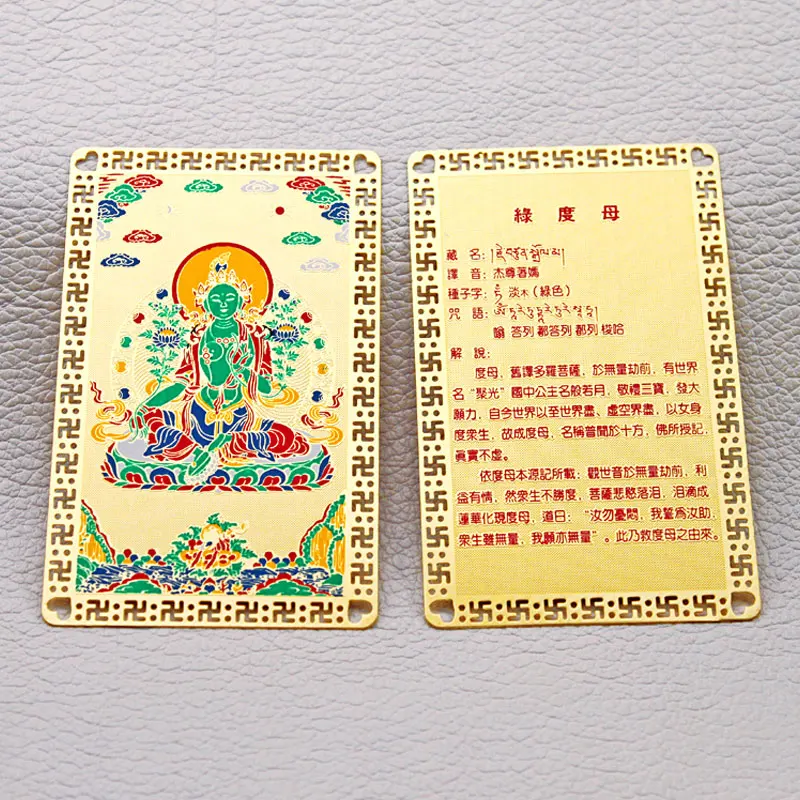 綠度母
藏 名：རྗེ་བཙུན་སྒྲོལ་མ།
譯 音：杰尊著嫣
種子字： 淡木（綠色）
咒 語：
嗡 答列 都答列 都列 梭哈
解 說：
度母，舊譯多羅菩薩，於無量劫前，有世界
名“聚光”國中公主名般若月，敬禮三寶，發大
願力，自今世界以至世界盡、虛空界盡，以女身
度衆生，故成度母，名稱普聞於十方，佛所授記，
真實不虛。
依度母本源記所載：觀世音於無量劫前，利
益有情，然衆生不勝度，菩薩悲愍落泪，泪滴成
蓮華化現度母，道曰：“汝勿憂悶，我誓爲汝助，
衆生雖無量，我願亦無量”。此乃救度母之由來。